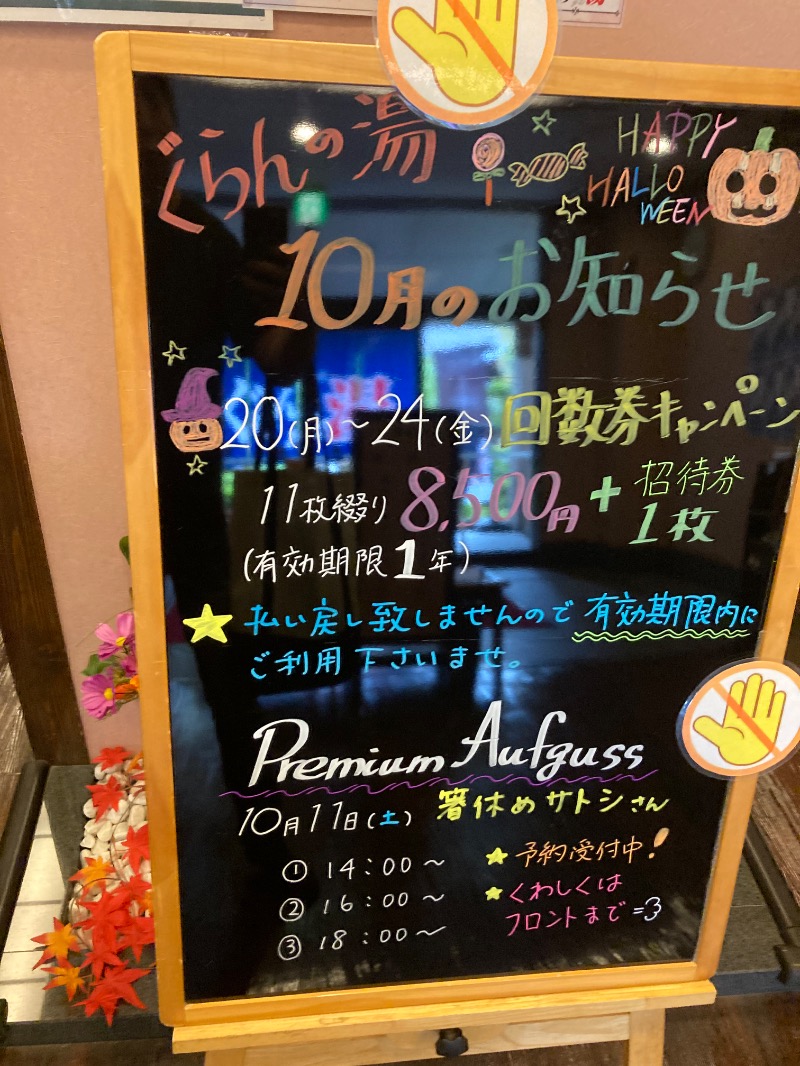 ぐらんの湯
HAPPY
HALLO
WEEN
10月のお知らせ
20(月)～24(金) 回数券キャンペーン
11枚綴り 8,500円 + 招待券
1枚
(有効期限1年)
★ 払い戻し致しませんので 有効期限内に
ご利用下さいませ。
Premium Aufguss
10月11日(土) 箸休めサトシさん
① 14:00～
② 16:00～
③ 18:00～
★ 予約受付中!
★ くわしくは
フロントまで=3